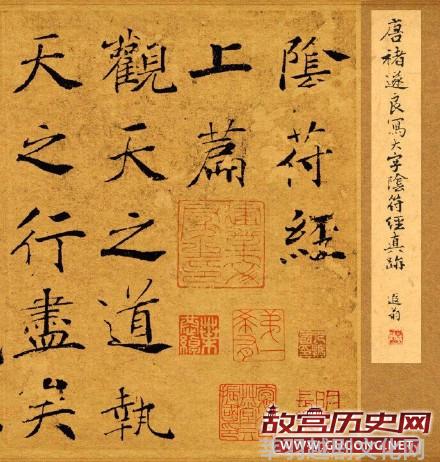 唐褚遂良寫大字陰符經真跡
遐翁
陰符經
上篇
觀天之道執
天之行盡矣
故宫历史网
WWW.GUGONG.NET